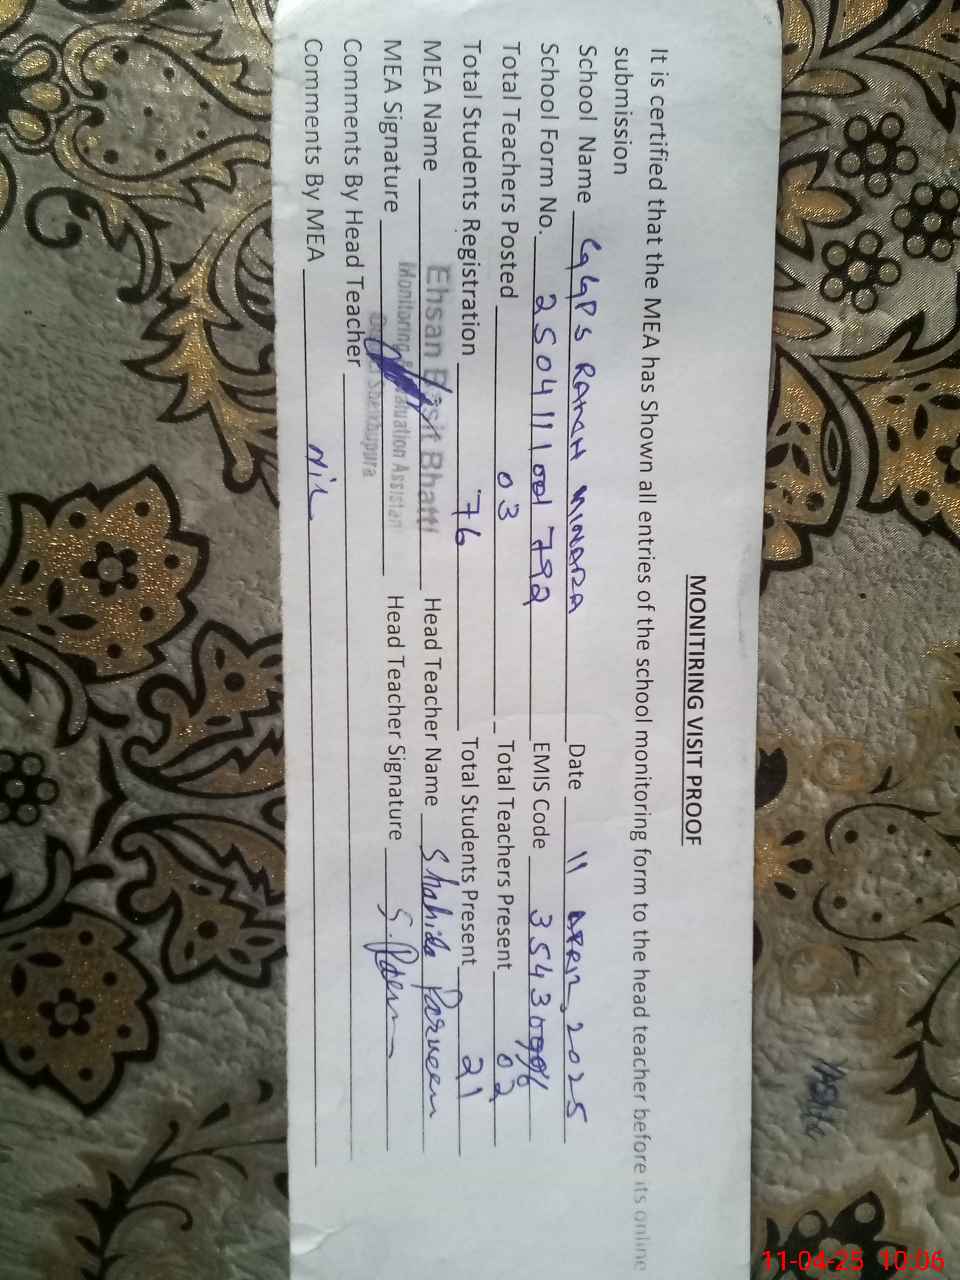 MONITIRING VISIT PROOF
It is certified that the MEA has Shown all entries of the school monitoring form to the head teacher before its online
submission
School Name GGPS RATAH MINARA Date 11 APRIL, 2025
School Form No. 2504111001792 EMIS Code 35430096
Total Teachers Posted 03 Total Teachers Present 02
Total Students Registration 76 Total Students Present 21
MEA Name Ehsan Basit Bhatti Head Teacher Name Shahida Parveen
Monitoring Evaluation Assistan
MEA Signature Head Teacher Signature
Sheikhupura
Comments By Head Teacher
Comments By MEA Nil
11-04-25 10:06